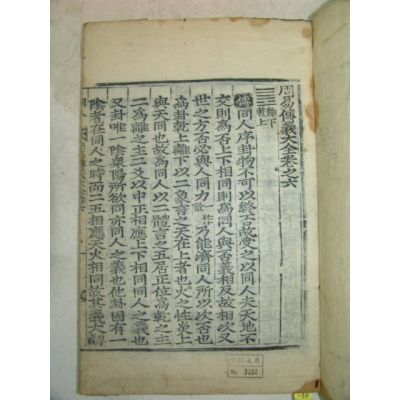 周易傳義大全卷之六
離下
乾上
傳同人序卦物不可以終否故受之以同人夫天地不
交則爲否上下相同則爲同人與否義相反故相次又
世之方否必與人同力乃能濟同人所以次否也
爲卦乾上離下以二象言之天在上者也火之性炎上
與天同也故爲同人以二體言之五居正位爲乾之主
二爲離之主二爻以中正相應上下相同同人之義也
又卦唯一陰衆陽所欲同亦同人之義也他卦固有一
陰者在同人之時而二五相應天火相同故其義大
No 3152